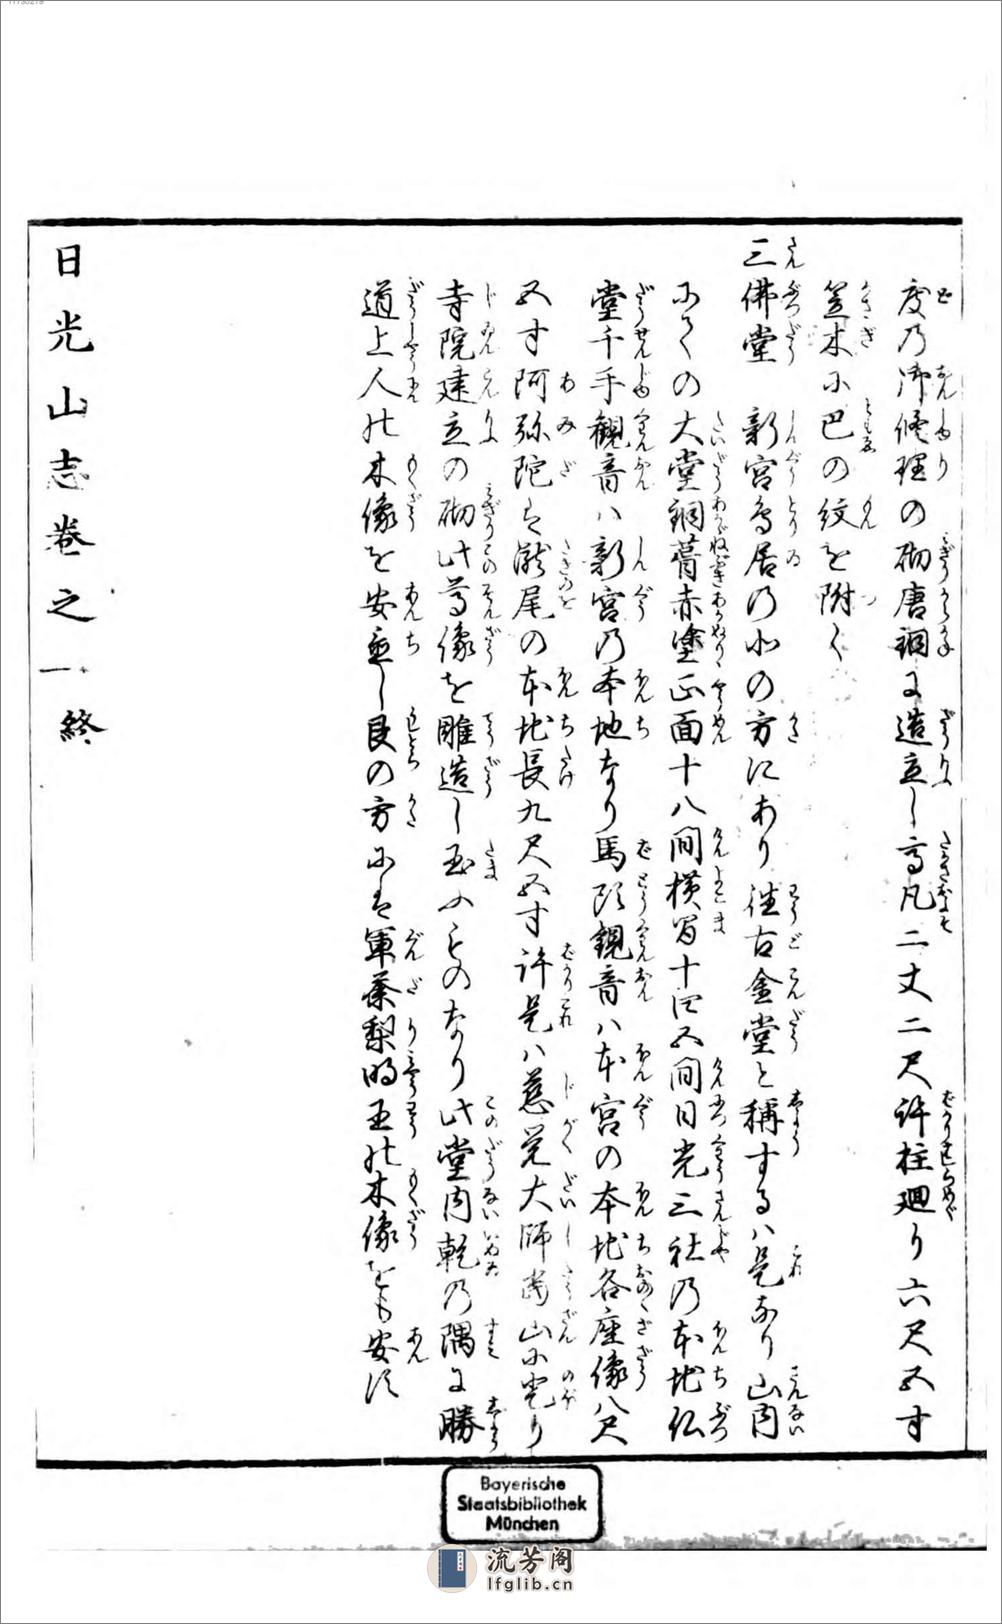 度乃御修理の砌唐銅に造立し高凡二丈二尺許柱廻り六尺五寸
笠木に巴の紋を附く
三佛堂　新宮鳥居の北の方にあり往古金堂と稱するハ是なり山内
にての大堂銅葺赤塗正面十八間横間十四五間日光三社の本地仏
堂千手観音ハ新宮の本地なり馬頭観音ハ本宮の本地各座像八尺
五寸阿弥陀は瀧尾の本地長九尺五寸許是ハ慈覚大師當山に登り
寺院建立の砌此尊像を雕造し玉ふものなり此堂内乾の隅に勝
道上人の木像を安置し艮の方には軍荼梨明王の木像をも安ず
日光山志巻之一終
Bayerische
Staatsbibliothek
München
流芳阁
lfglib.cn